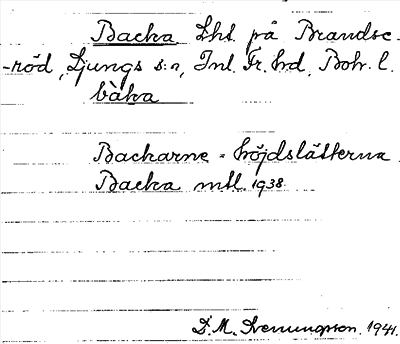 Backa Lht. på Brandse-
-röd, Ljungs s:n, Inl. Fr. hd, Boh. l.
bàka
Backarna = höjdslätterna.
Backa mtl 1938.
D. M. Svenungson. 1941.